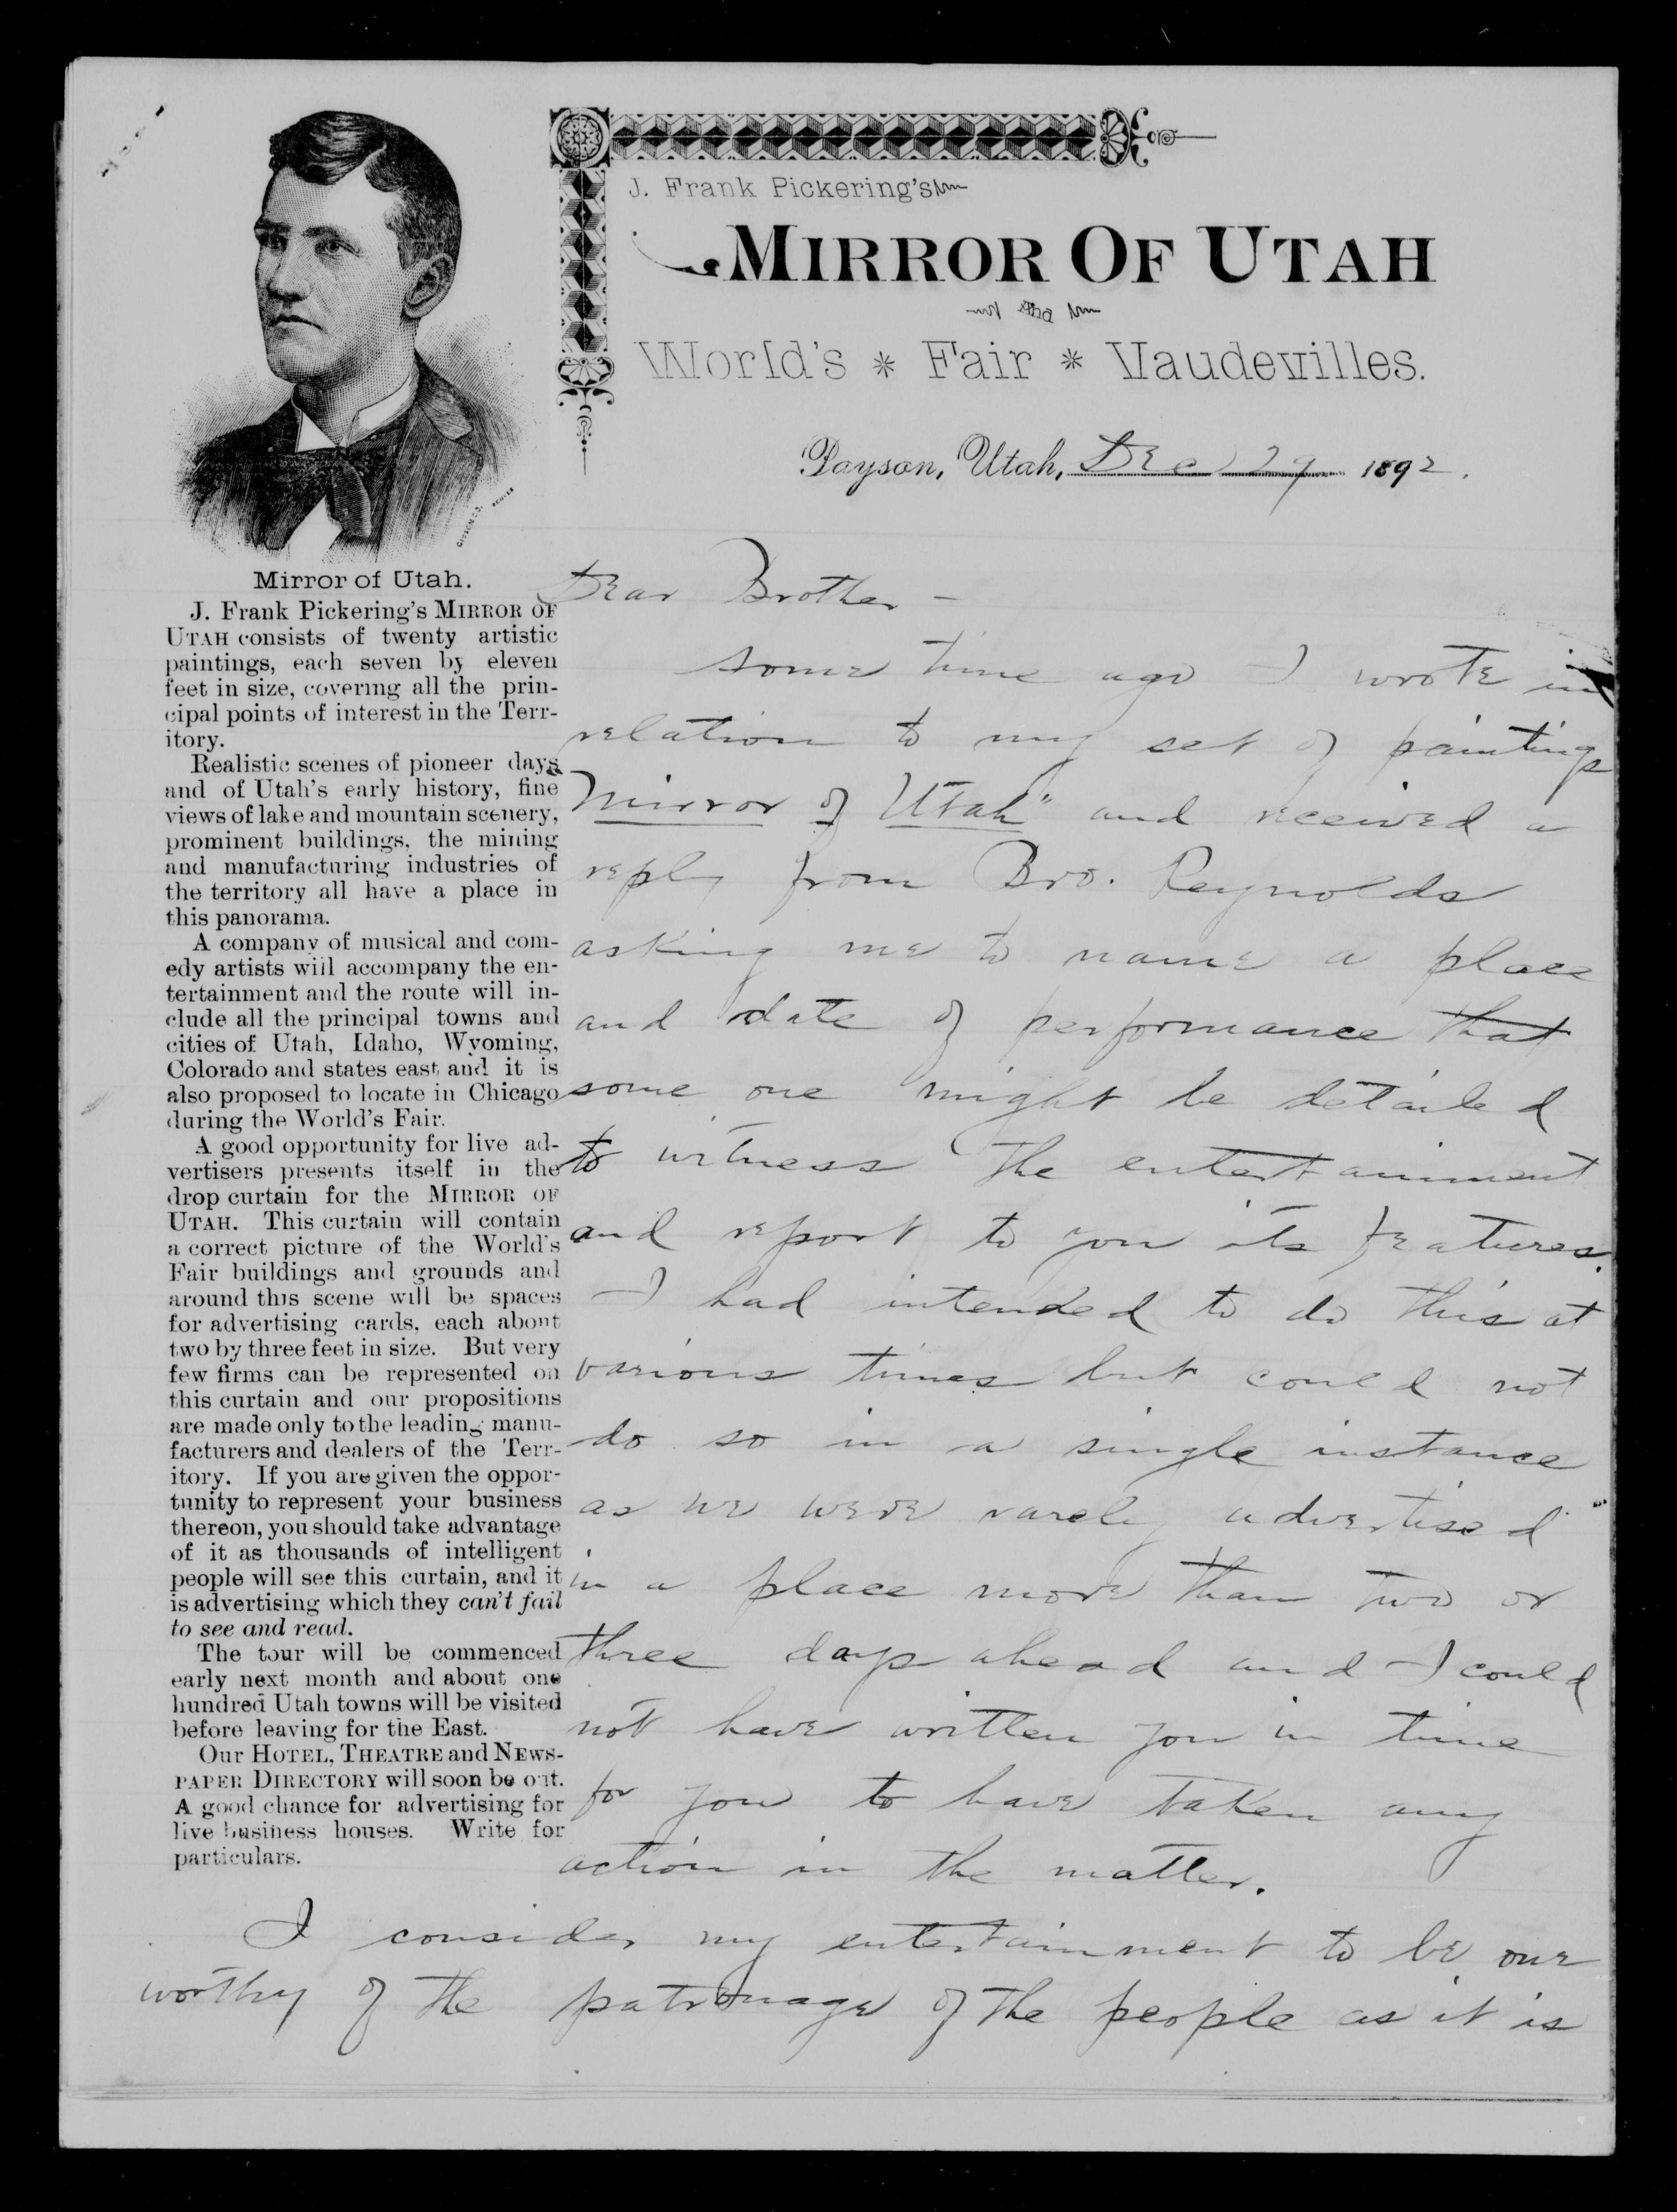 J. Frank Pickering's
MIRROR OF UTAH
and
World's * Fair * Vaudevilles.
Payson, Utah, Dec 29 1892.
Mirror of Utah.
J. Frank Pickering's MIRROR OF
UTAH consists of twenty artistic
paintings, each seven by eleven
feet in size, covering all the prin-
cipal points of interest in the Terr-
itory.
Realistic scenes of pioneer days
and of Utah's early history, fine
views of lake and mountain scenery,
prominent buildings, the mining
and manufacturing industries of
the territory all have a place in
this panorama.
A company of musical and com-
edy artists will accompany the en-
tertainment and the route will in-
clude all the principal towns and
cities of Utah, Idaho, Wyoming,
Colorado and states east and it is
also proposed to locate in Chicago
during the World's Fair.
A good opportunity for live ad-
vertisers presents itself in the
drop curtain for the MIRROR OF
UTAH. This curtain will contain
a correct picture of the World's
Fair buildings and grounds and
around this scene will be spaces
for advertising cards, each about
two by three feet in size. But very
few firms can be represented on
this curtain and our propositions
are made only to the leading manu-
facturers and dealers of the Terr-
itory. If you are given the oppor-
tunity to represent your business
thereon, you should take advantage
of it as thousands of intelligent
people will see this curtain, and it
is advertising which they can't fail
to see and read.
The tour will be commenced
early next month and about one
hundred Utah towns will be visited
before leaving for the East.
Our HOTEL, THEATRE and NEWS-
PAPER DIRECTORY will soon be out.
A good chance for advertising for
live business houses. Write for
particulars.
Dear Brother -
Some time ago I wrote in
relation to my set of paintings
"Mirror of Utah" and received a
reply from Bro. Reynolds
asking me to name a place
and date of performance that
some one might be detailed
to witness the entertainment
and report to you its features.
I had intended to do this at
various times but could not
do so in a single instance
as we were rarely advertised
in a place more than two or
three days ahead and I could
not have written you in time
for you to have taken any
action in the matter.
I consider my entertainment to be one
worthy of the patronage of the people as it is